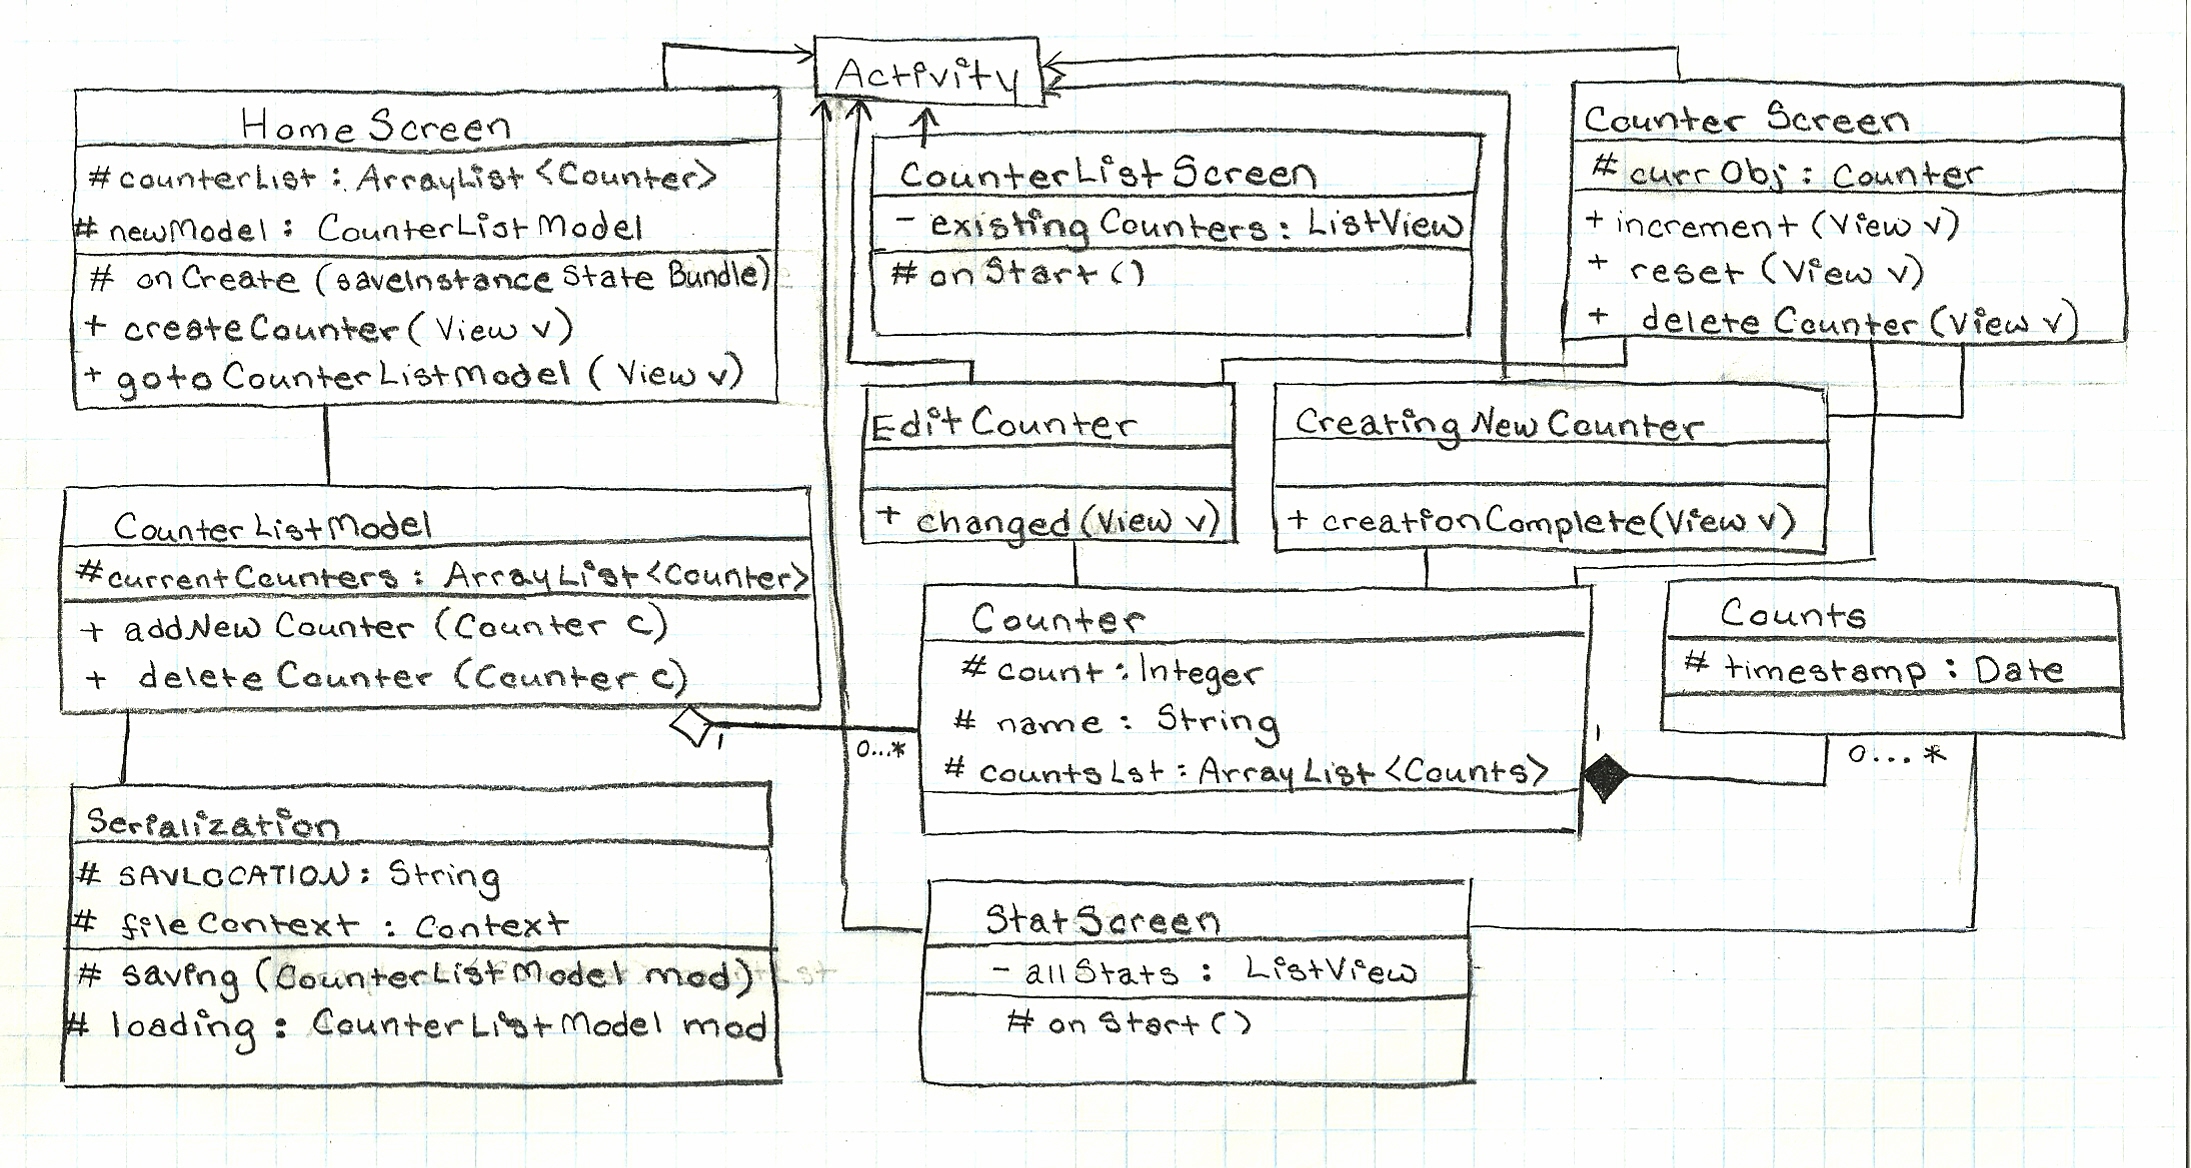 Activity
Home Screen
# counterList : ArrayList <Counter>
# newModel : CounterListModel
# onCreate (saveInstance State Bundle)
+ createCounter ( View v)
+ gotoCounterListModel ( View v)
CounterListScreen
- existing Counters : ListView
# onStart ()
Counter Screen
# curr Obj : Counter
+ increment (View v)
+ reset (View v)
+ delete Counter (View v)
Edit Counter
+ changed (View v)
Creating New Counter
+ creationComplete(View v)
CounterListModel
# currentCounters : ArrayList<Counter>
+ addNew Counter (Counter c)
+ delete Counter (Counter c)
1
0...*
Counter
# count : Integer
# name : String
# countsLst : ArrayList <Counts>
1
Counts
# timestamp : Date
0....*
Serialization
# SAVLOCATION : String
# fileContext : Context
# saving (CounterListModel mod)
# loading : CounterListModel mod
StatScreen
- allStats : ListView
# onStart ()